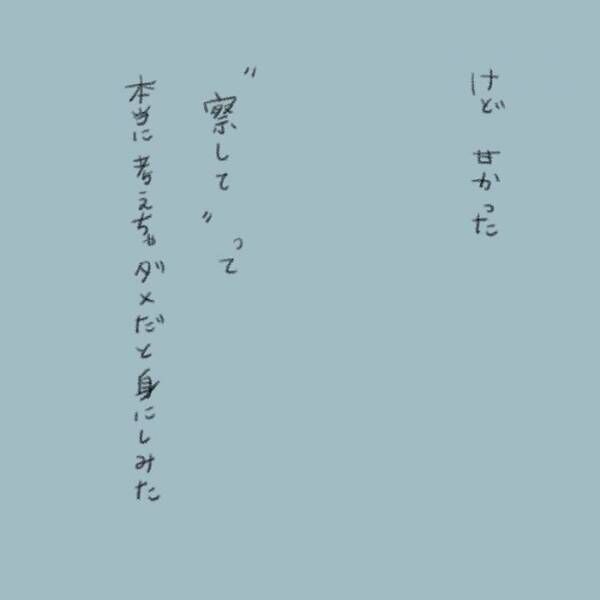 けど 甘かった
"察して"って
本当に考えちゃダメだと身にしみた